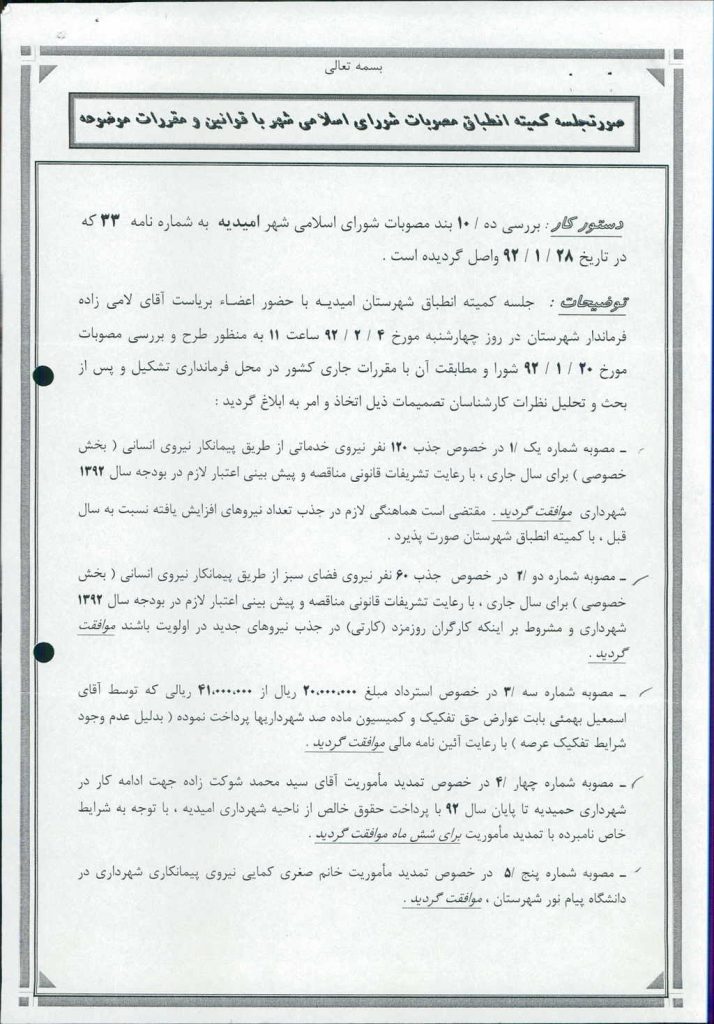 بسمه تعالی
صورتجلسه کمیته انطباق مصوبات شورای اسلامی شهر با قوانین و مقررات موضوعه
دستور کار : بررسی ده / ۱۰ بند مصوبات شورای اسلامی شهر امیدیه به شماره نامه ۳۳ که
در تاریخ ۲۸ / ۱ / ۹۲ واصل گردیده است .
توضیحات : جلسه کمیته انطباق شهرستان امیدیـه با حضور اعضـاء بریاست آقای لامی زاده
فرماندار شهرستان در روز چهارشنبه مورخ ۴ / ۲ / ۹۲ ساعت ۱۱ به منظور طرح و بررسی مصوبات
مورخ ۲۰ / ۱ / ۹۲ شورا و مطابقت آن با مقررات جاری کشور در محل فرمانداری تشکیل و پس از
بحث و تحلیل نظرات کارشناسان تصمیمات ذیل اتخاذ و امر به ابلاغ گردید :
ـ مصوبه شماره یک /۱ در خصوص جذب ۱۲۰ نفر نیروی خدماتی از طریق پیمانکار نیروی انسانی ( بخش
خصوصی ) برای سال جاری ، با رعایت تشریفات قانونی مناقصه و پیش بینی اعتبار لازم در بودجه سال ۱۳۹۲
شهرداری موافقت گردید . مقتضی است هماهنگی لازم در جذب تعداد نیروهای افزایش یافته نسبت به سال
قبل ، با کمیته انطباق شهرستان صورت پذیرد .
ـ مصوبه شماره دو /۲ در خصوص جذب ۶۰ نفر نیروی فضای سبز از طریق پیمانکار نیروی انسانی ( بخش
خصوصی ) برای سال جاری ، با رعایت تشریفات قانونی مناقصه و پیش بینی اعتبار لازم در بودجه سال ۱۳۹۲
شهرداری و مشروط بر اینکه کارگران روزمزد (کارتی) در جذب نیروهای جدید در اولویت باشند موافقت
گردید .
ـ مصوبه شماره سه /۳ در خصوص استرداد مبلغ ۲۰،۰۰۰،۰۰۰ ریال از ۴۱،۰۰۰،۰۰۰ ریالی که توسط آقای
اسمعیل بهمئی بابت عوارض حق تفکیک و کمیسیون ماده صد شهرداریها پرداخت نموده ( بدلیل عدم وجود
شرایط تفکیک عرصه ) با رعایت آئین نامه مالی موافقت گردید .
ـ مصوبه شماره چهار /۴ در خصوص تمدید مأموریت آقای سید محمد شوکت زاده جهت ادامه کار در
شهرداری حمیدیه تا پایان سال ۹۲ با پرداخت حقوق خالص از ناحیه شهرداری امیدیه ، با توجه به شرایط
خاص نامبرده با تمدید مأموریت برای شش ماه موافقت گردید .
ـ مصوبه شماره پنج /۵ در خصوص تمدید مأموریت خانم صغری کمایی نیروی پیمانکاری شهرداری در
دانشگاه پیام نور شهرستان ، موافقت گردید .